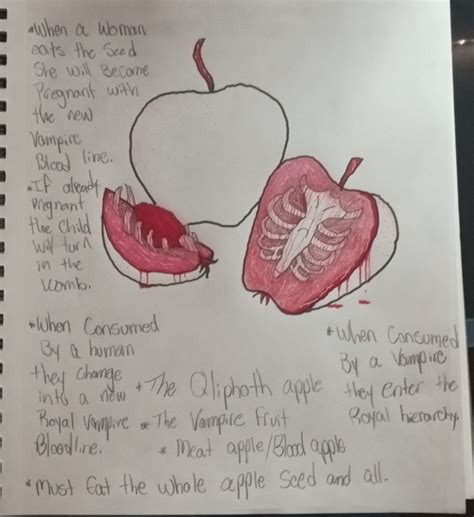 *When a Woman
eats the Seed
She will Become
Pregnant with
the new
Vampire
Blood line.
*If already
pregnant
the child
will turn
in the
womb.
*When Consumed
By a human
they change
into a new
Royal Vampire
Bloodline.
*The Qliphoth apple
*The Vampire Fruit
*Meat apple/Blood apple
*When Consumed
By a Vampire
they enter the
Royal hierarchy.
*Must Eat the Whole apple Seed and all.